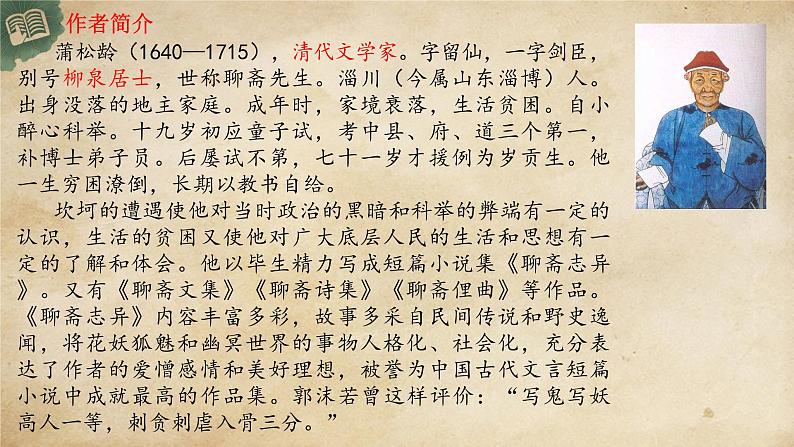 作者简介
蒲松龄（1640—1715），清代文学家。字留仙，一字剑臣，
别号柳泉居士，世称聊斋先生。淄川（今属山东淄博）人。
出身没落的地主家庭。成年时，家境衰落，生活贫困。自小
醉心科举。十九岁初应童子试，考中县、府、道三个第一，
补博士弟子员。后屡试不第，七十一岁才援例为岁贡生。他
一生穷困潦倒，长期以教书自给。
坎坷的遭遇使他对当时政治的黑暗和科举的弊端有一定的
认识，生活的贫困又使他对广大底层人民的生活和思想有一
定的了解和体会。他以毕生精力写成短篇小说集《聊斋志异
》。又有《聊斋文集》《聊斋诗集》《聊斋俚曲》等作品。
《聊斋志异》内容丰富多彩，故事多采自民间传说和野史逸
闻，将花妖狐魅和幽冥世界的事物人格化、社会化，充分表
达了作者的爱憎感情和美好理想，被誉为中国古代文言短篇
小说中成就最高的作品集。郭沫若曾这样评价：“写鬼写妖
高人一等，刺贪刺虐入骨三分。”